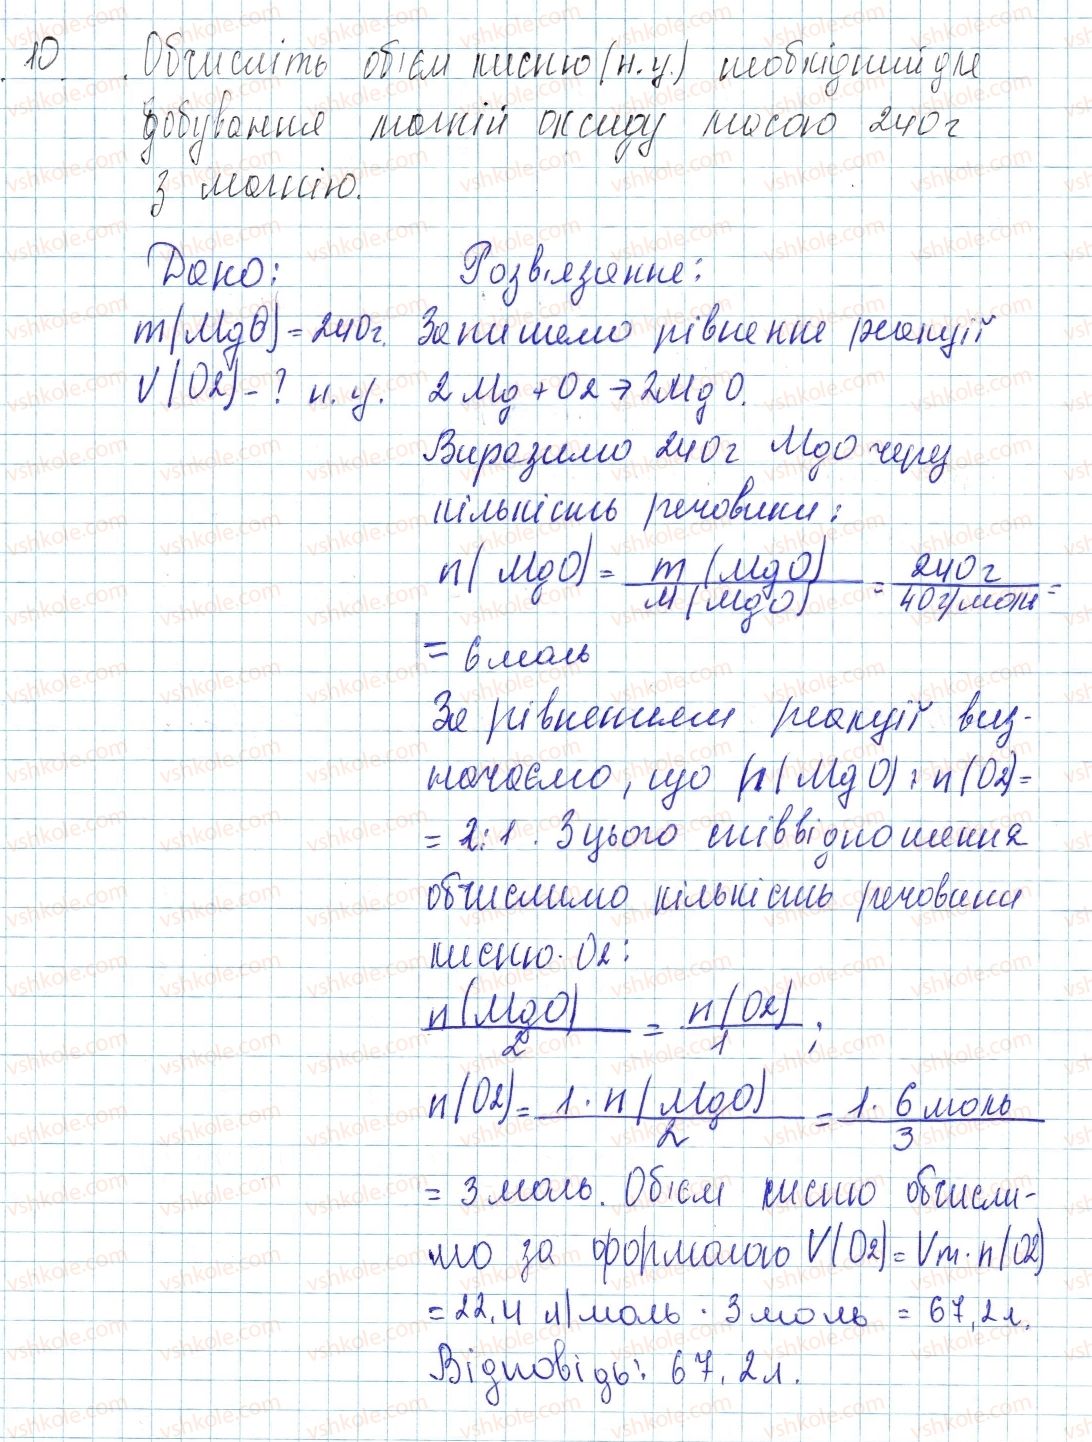 10. Обчисліть об'єм кисню (н.у.) необхідний для
добування магній оксиду масою 240г
з магнію.
Дано: Розв'язання:
m(MgO)=240г. Запишемо рівняння реакції
V(O2)-? н.у. 2Mg+O2→2MgO.
Виразимо 240г MgO через
кількість речовини:
n(MgO)= m(MgO)/M(MgO) = 240г/40г/моль =
= 6 моль
За рівнянням реакції виз-
начаємо, що n(MgO):n(O2)=
= 2:1. З цього співвідношення
обчислимо кількість речовини
кисню O2:
n(MgO)/2 = n(O2)/1;
n(O2)= 1·n(MgO)/2 = 1·6 моль/3
= 3 моль. Об'єм кисню обчисли-
мо за формолою V(O2)=Vm·n(O2)
= 22,4 л/моль · 3 моль = 67,2л.
Відповідь: 67,2л.